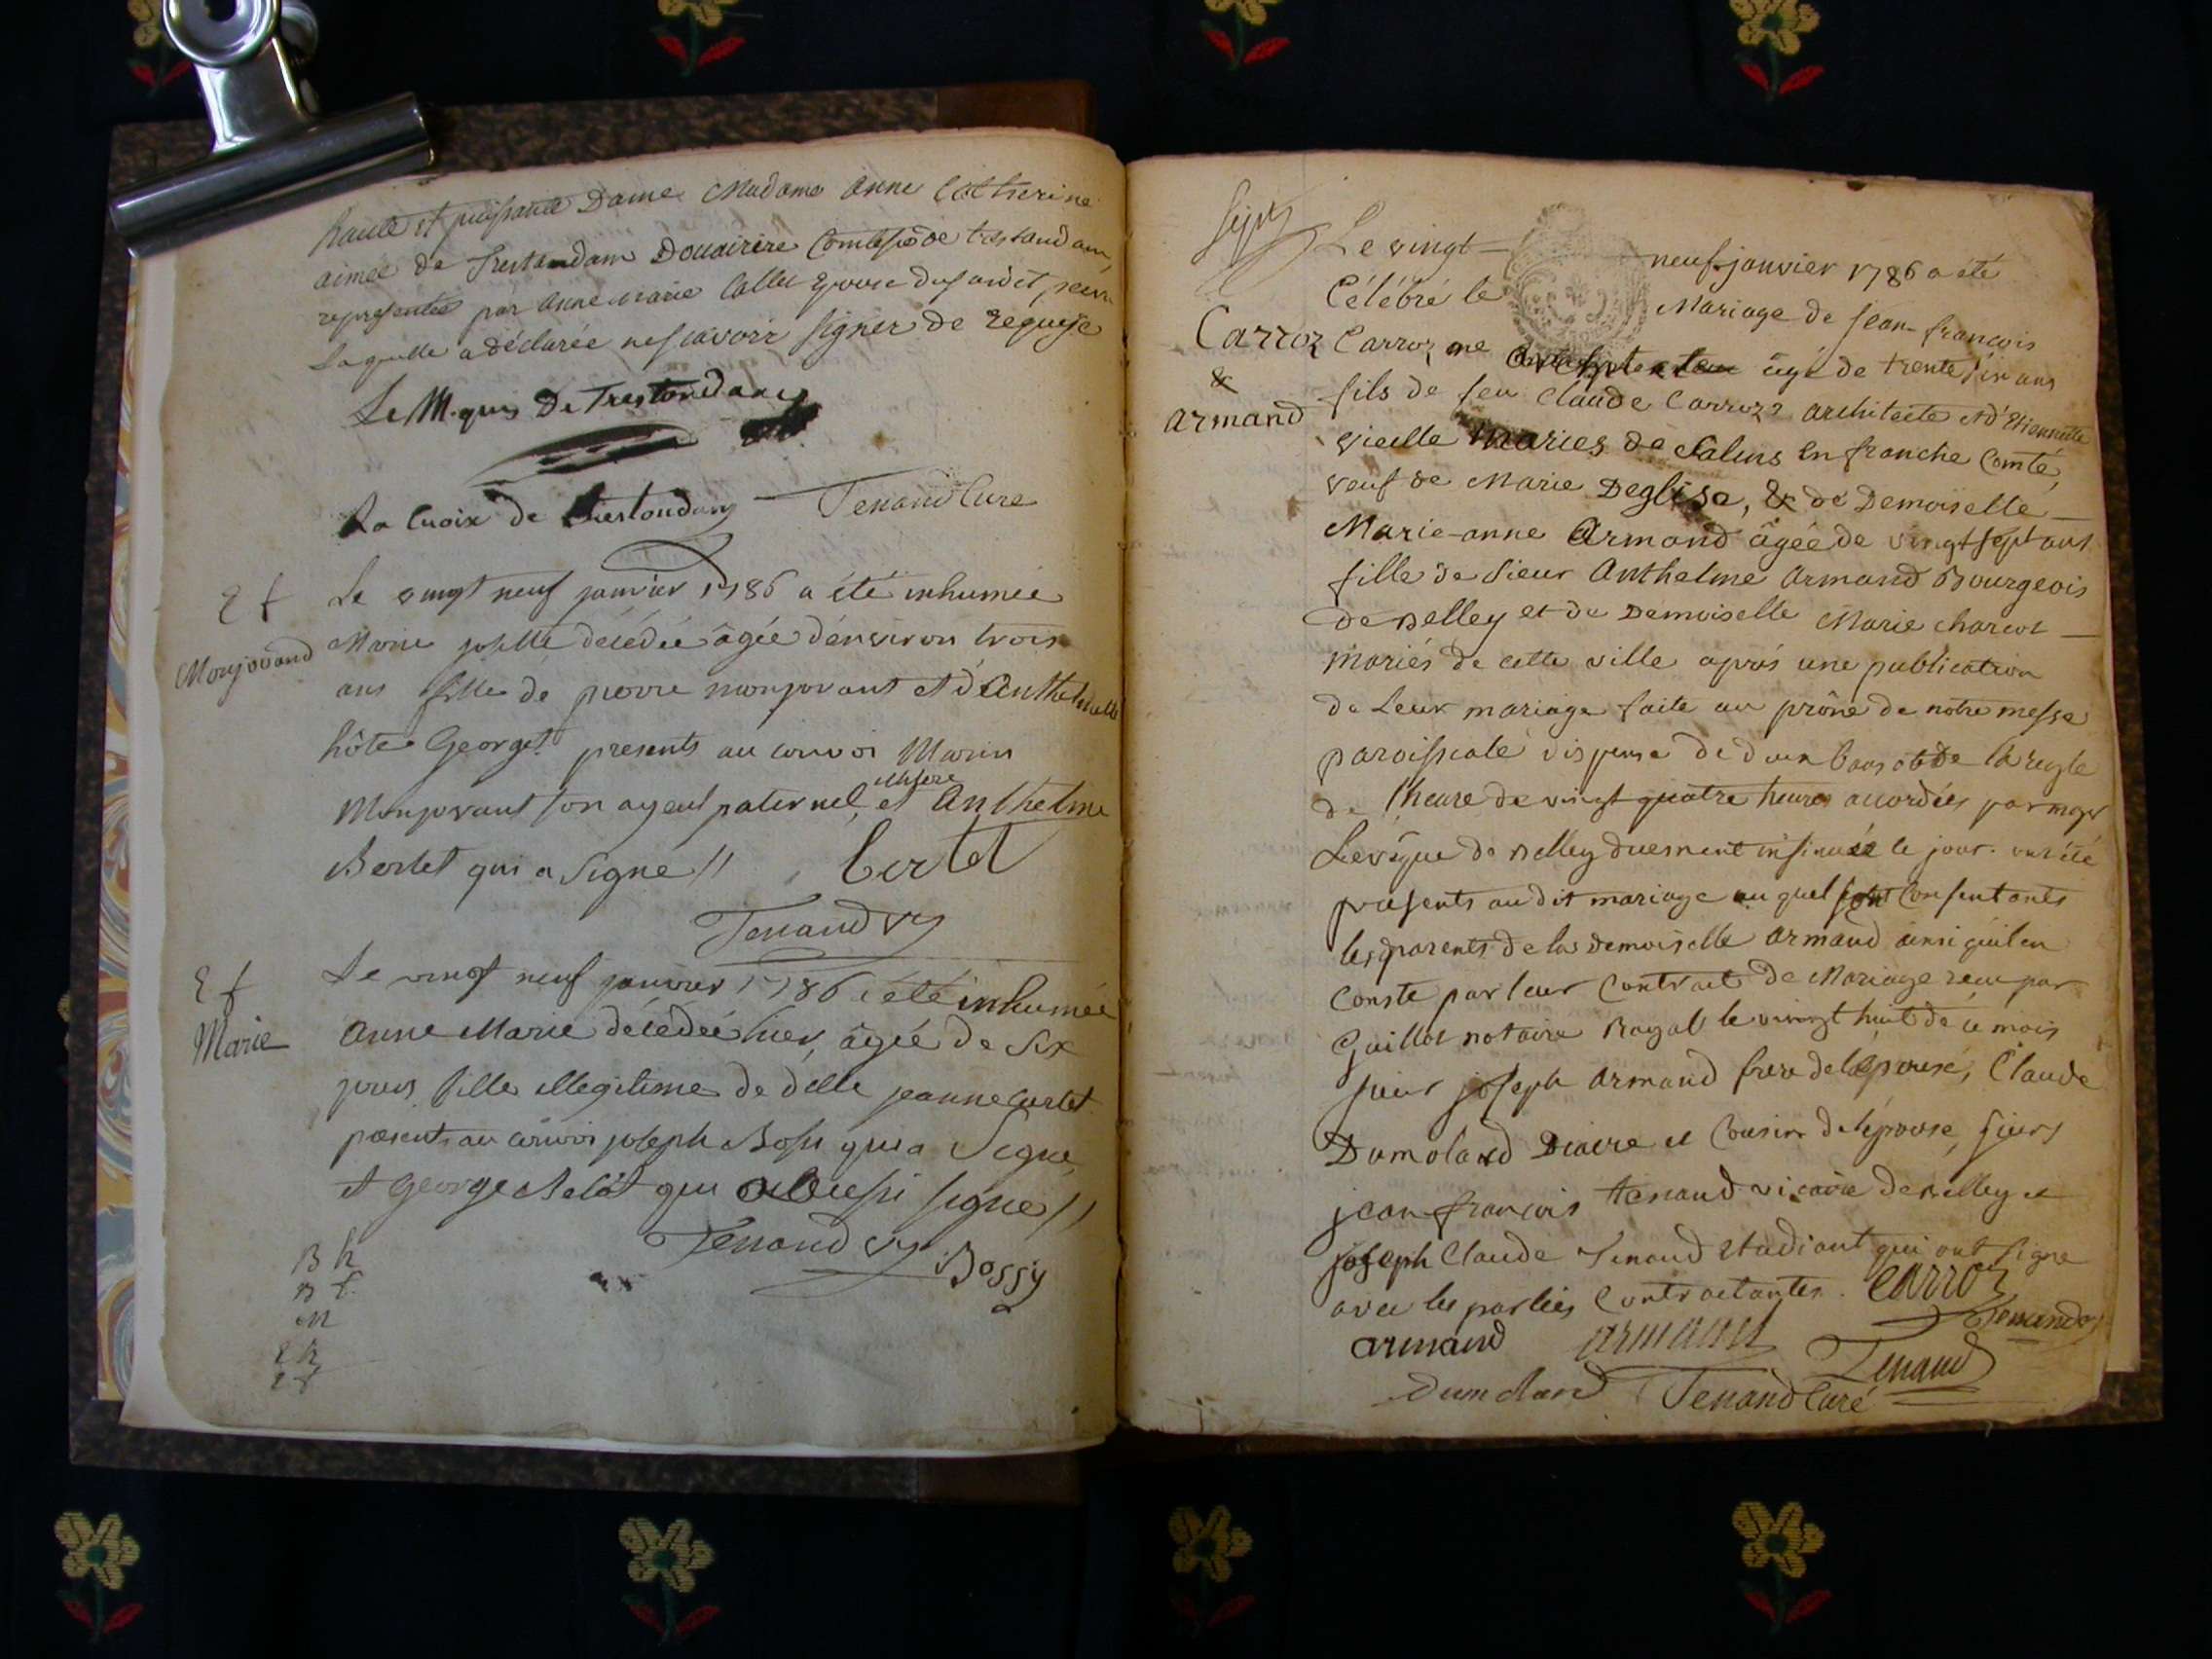 haute et puissante Dame Madame anne Catherine
aimée de Trestondam Douairiere Comtesse de trestondam,
representée par anne marie Collet Epouse dudit
Laquelle a déclarée ne sçavoir signer de requise
Le M.quis De Trestondam
La Croix de Trestondam Tenand Curé
E f
Monjovand
Le vingt neuf janvier 1786 a été inhumée
Marie josette décédée âgée d'environ trois
ans fille de pierre monjovant et d'Anthelmette
hôte Georget presents au convoi Marin
Monjovant son ayeul paternel, illisere et Anthelme
Bertet qui a signé // bertet
Tenand
E f
Marie
Le vingt neuf janvier 1786 a été inhumée
Anne Marie décédée hier, âgée de six
jours fille illegitime de delle jeanne Curtet
presents au convoi joseph Bossi qui a Signé,
et George Belot qui a aussi signé //
Tenand Bossy
B h
B f.
M
E h
E f
Carroz
&
armand
Le vingt neuf janvier 1786 a été
Célébré le Mariage de jean-françois
Carroz âgé de trente six ans
fils de feu Claude Carroz architecte et d'Etiennette
vieille mariés de Salins En franche Comté,
veuf de Marie Deglise, & de Demoiselle
Marie-anne Armand âgée de vingt sept ans
fille de sieur Anthelme Armand Bourgeois
de Belley et de Demoiselle Marie charcot
mariés de cette ville après une publication
de Leur mariage faite au prône de notre messe
paroissiale dispense de deux bans et de la regle
de l'heure de vingt quatre heures accordées par mgr
L'evêque de Belley duement insinuée le jour. ont été
presents audit mariage au quel sont Consentants
les parents de la demoiselle armand ainsi qu'il en
Conste par leur Contract de Mariage recu par
Guillot notaire Royal le vingt huit de ce mois
sieur joseph armand frere de l'épouse, Claude
Dumolard Diacre et Cousin de l'épouse, sieurs
jean françois tenand vicaire de Belley et
joseph Claude Tenand etudiant qui ont signé
avec les parties Contractantes. Carroz
armand armand Tenand
Dumolard Tenand Curé Tenand